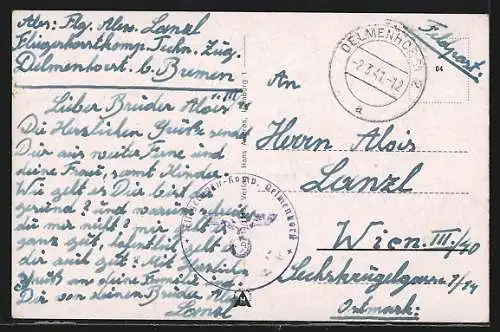 Abs: Flg. Alex. Lanzl
Fliegerhorstkomp. Techn. Zug.
Delmenhorst b. Bremen
Lieber Bruder Alois !!!
Die Herzlichen Grüße sendet
Dir aus weiter Ferne und
deine Frau, samt Kinder.
Wie geht es Dir bist
gesund? und warum schreibst
du mir nicht? mir geht es
ganz gut, hofentlich geht es
dir auch gut? Mit Herzlichen
Gruß an deine Familie und
Dir von deinen Bruder Alex
Lanzl
DELMENHORST 2
-2.3.41.-12
a
Feldpost.
64
An
Herrn Alois
Lanzl
Wien III./40
Sechskrügelgasse 2/14
Ostmark.